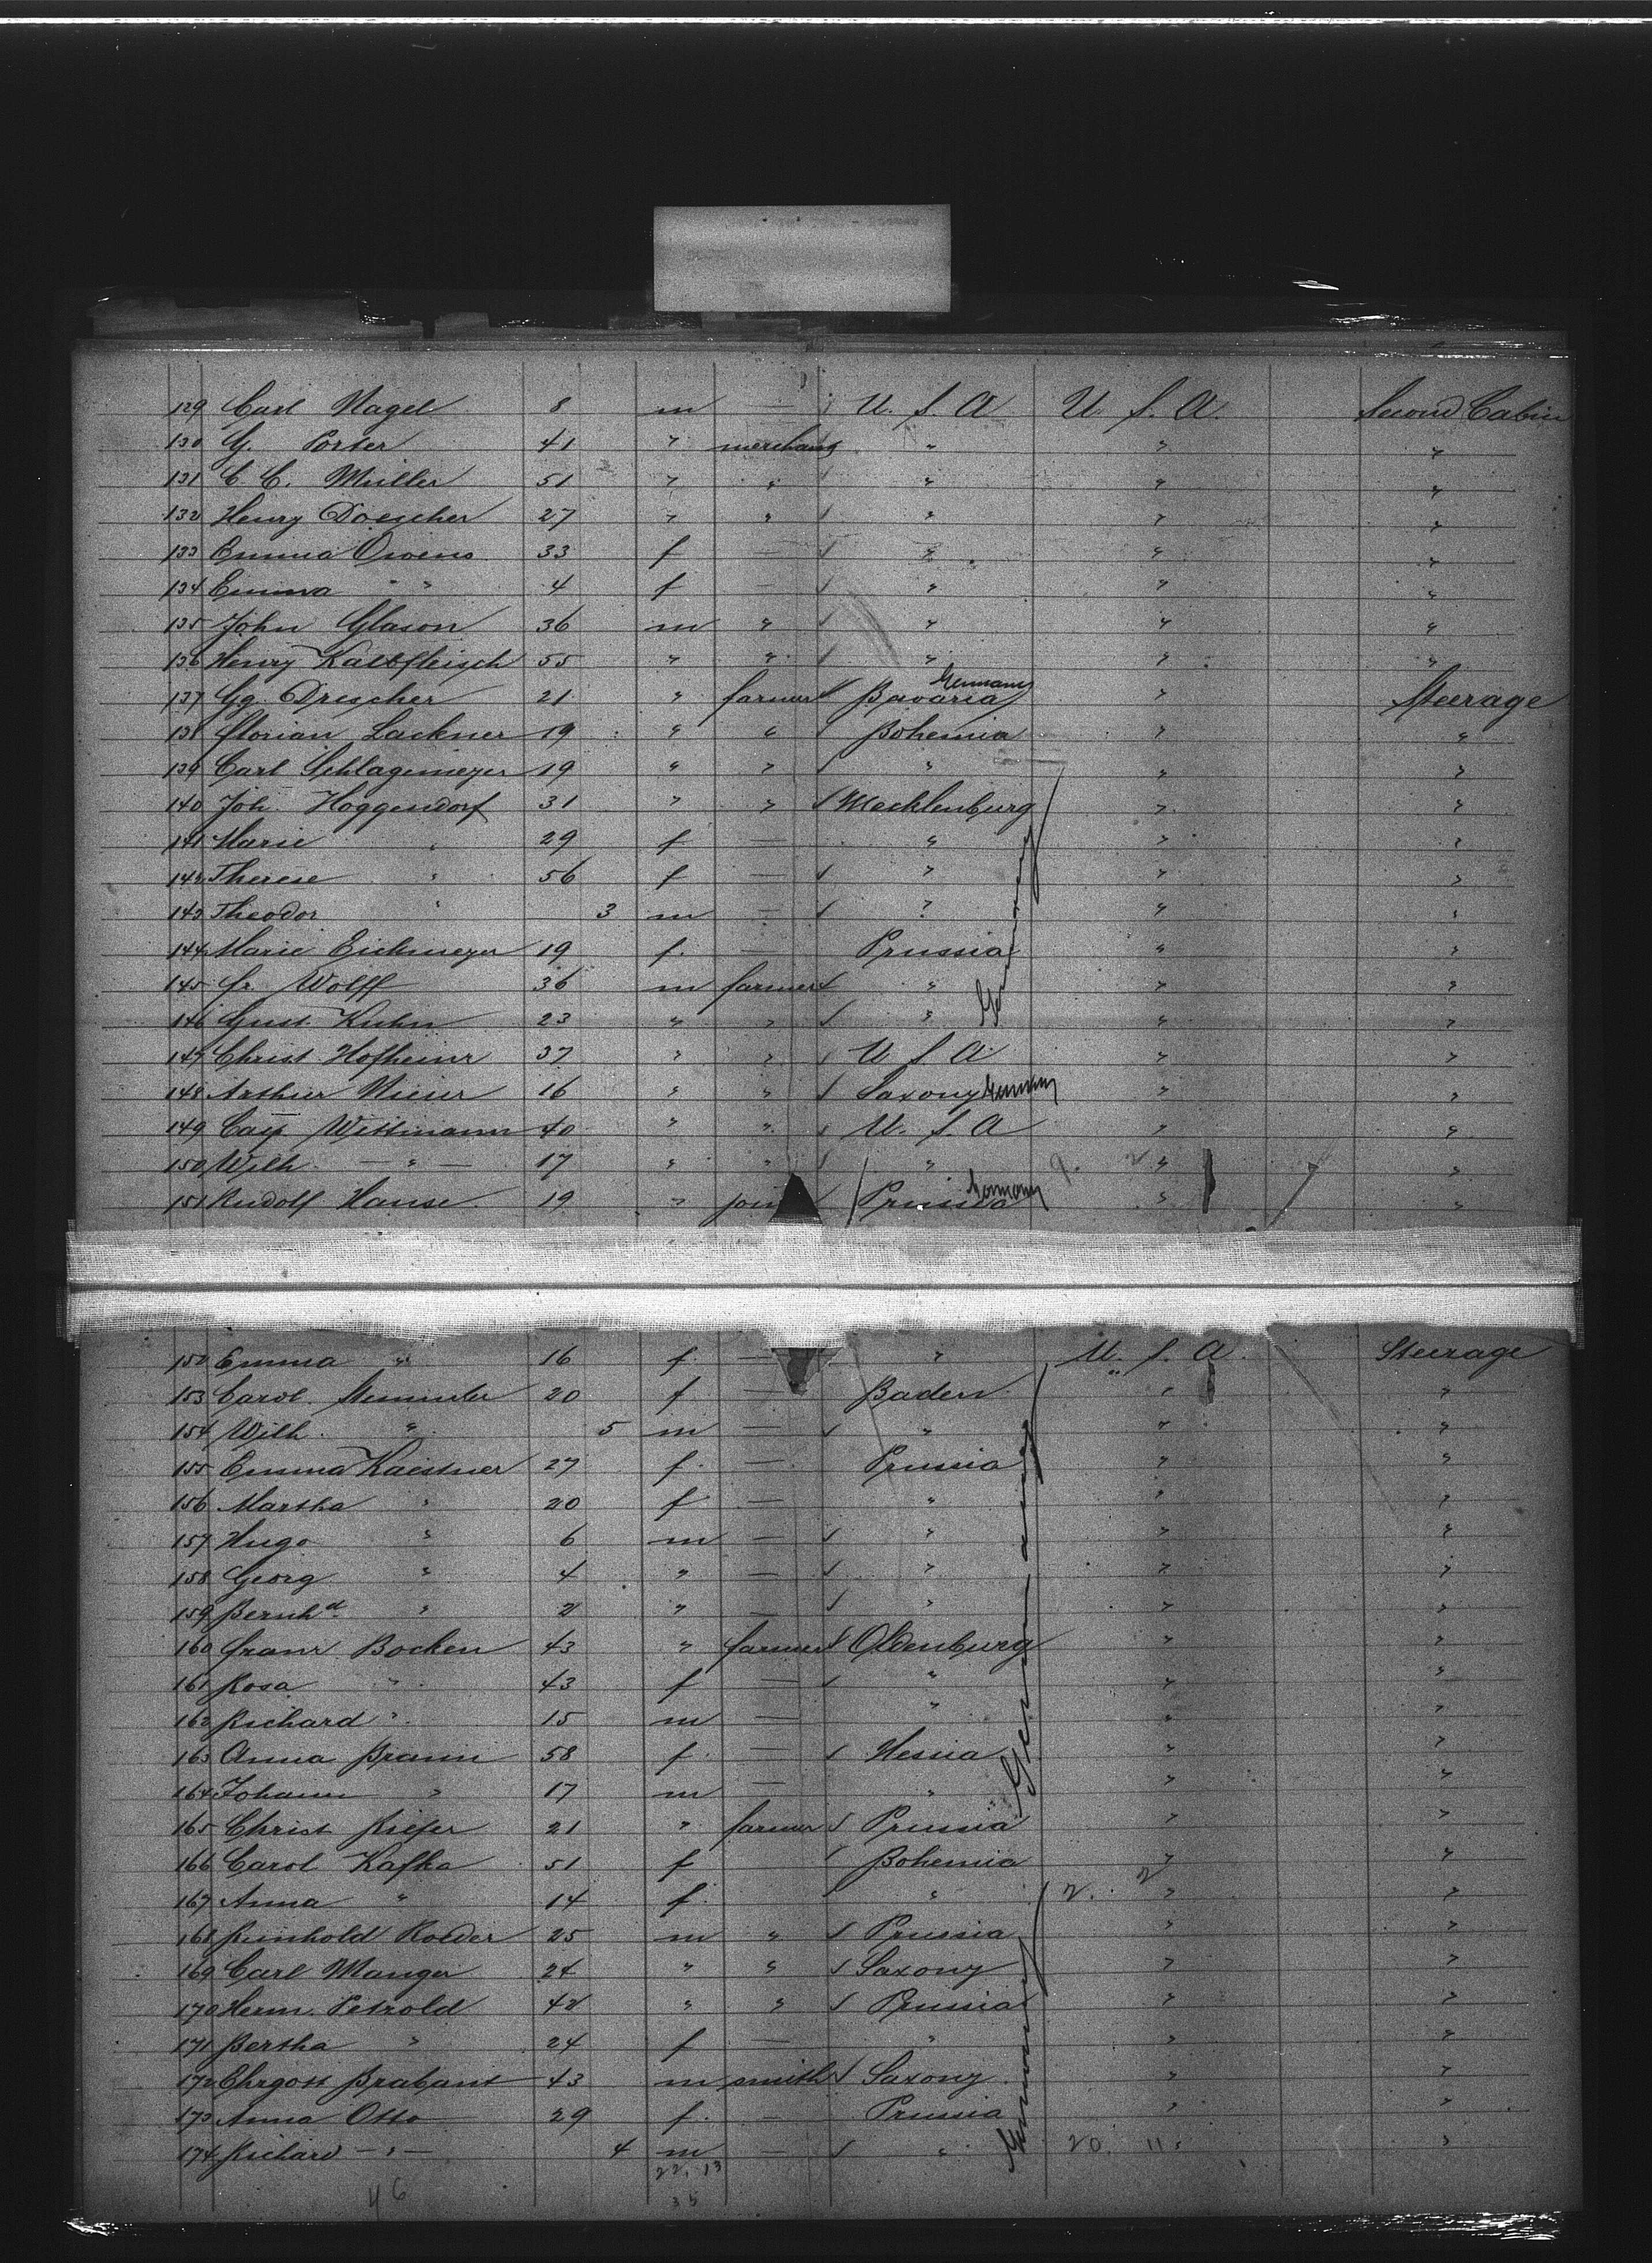 129 Carl Nagel 8 m — U. S. A U. S. A. Second Cabin
130 G. Porter 41 " merchant " " "
131 C. C. Müller 51 " " " " "
132 Henry Doescher 27 " " " " "
133 Emma Owens 33 f — " " "
134 Emma " 4 f — " " "
135 John Glason 36 m " " " "
136 Henry Kalbfleisch 55 " " " " "
137 Gg. Drescher 21 " farmer Bavaria Germany " Steerage
138 Florian Lackner 19 " " Bohemia " "
139 Carl Schlagemeyer 19 " " " " "
140 Joh. Hoggendorf 31 " " Mecklenburg " "
141 Marie " 29 f — " " "
142 Therese " 56 f — " " "
143 Theodor " 3 m — " " "
144 Marie Eickmeyer 19 f. — Prussia " "
145 Fr. Wolff 36 m farmer " " "
146 Gust. Kuhn 23 " " " " "
Germany
147 Christ. Hofheinz 37 " " U S A " "
148 Arthur 16 " " Saxony Germany " "
149 Casp. Wittmann 40 " " U. S. A " "
150 Wilh. — " — 17 " " " " "
151 Rudolf Hanse 19 " Prussia Germany " "
152 Emma " 16 f. — " U. S. A. Steerage
153 Carol. 20 f — Baden " "
154 Wilh. " 5 m — " " "
155 Emma Kaestner 27 f. — Prussia " "
156 Martha " 20 f — " " "
157 Hugo " 6 m — " " "
158 Georg " 4 " — " " "
159 Bernhd. " 2 " — " " "
160 Franz Bocken 43 " farmer Oldenburg " "
161 Rosa " 43 f — " " "
162 Richard " 15 m — " " "
163 Anna Braun 58 f. — Hessia " "
164 Johann " 17 m — " " "
Germany
165 Christ. Kiefer 21 " farmer Prussia " "
166 Carol Kafka 51 f Bohemia " "
167 Anna " 14 f. " 2. 2 " "
168 Reinhold Roeder 25 m " Prussia " "
169 Carl Manger 24 " " Saxony " "
170 Herm. Petzold 42 " " Prussia " "
171 Bertha " 24 f — " " "
172 Ehrgott Brabant 43 m smith Saxony " "
173 Anna Otto 29 f. — Prussia " "
174 Richard — " — 4 m — " 20. 11 " "
Germany
22. 13
46 35